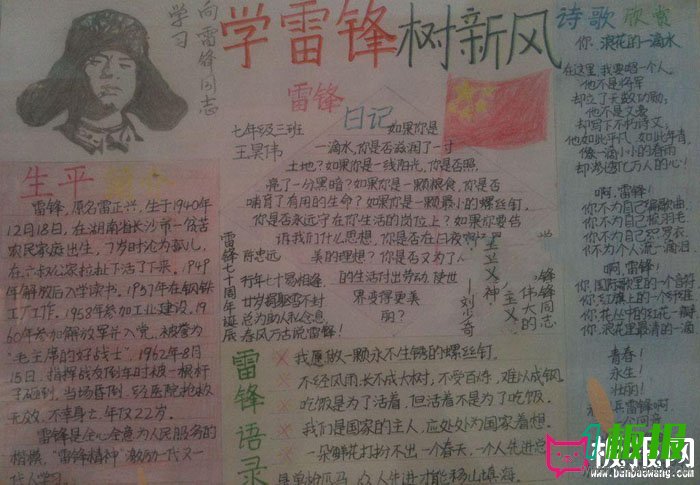 向雷锋同志
学习
学雷锋树新风
雷锋
日记
七年级三班
王昊伟
如果你是
一滴水,你是否滋润了一寸
土地?如果你是一线阳光,你是否照
亮了一分黑暗?如果你是一颗粮食,你是否
哺育了有用的生命?如果你是一颗最小的螺丝钉,
你是否永远守在你生活的岗位上?如果你要告
诉我们什么思想,你是否在日夜
美的理想?你是否又为了人
的生活付出劳动,使世
界变得更美
丽?
生平
雷锋,原名雷正兴,生于1940年
12月18日,在湖南省长沙市一贫苦
农民家庭出生,7岁时沦为孤儿,
在六叔公家拉扯下活了下来。1949
年解放后入学读书。1957年在钢铁
工厂工作。1958年参加工业建设。19
60年参加解放军并入党,被誉为
“毛主席的好战士”,1962年8月
15日,指挥战友倒车时被一根杆
子砸到,当场昏倒,经医院抢救
无效,不幸身亡,年仅22岁。
雷锋是全心全意为人民服务的
楷模,“雷锋精神”激励一代又一
代人学习
雷锋七十周年诞辰
陈忠远
行年七十易相逢
廿岁
总为助人私念息
春风万古说雷锋!
刘少奇
雷锋语录
我愿做一颗永不生锈的螺丝钉.
不经风雨,长不成大树,不受百炼,难以成钢.
吃饭是为了活着,但活着不是为了吃饭.
我们是国家的主人,应处处为国家着想.
一朵鲜花打扮不出一个春天,一个人先进总
是单枪匹马,众人先进才能移山填海.
诗歌欣赏
你,浪花的一滴水
在这里,我要唱一个人。
他不是将军
却立了无数功勋;
他不是文豪
却写下不朽诗文;
他如此平凡,如此年青,
像一滴小小的春雨
却渗透亿万人的心!
啊,雷锋!
你不为自己编歌曲,
你不为自己披羽毛
你不为自己织罗衣
你不为个人流一滴泪
啊,雷锋!
你,国际歌里的一个音符
你,红旗上的一个纤维
你,花丛中的红花一瓣
你,浪花里最清的一滴
青春!
永生!
壮丽!
兵雷锋啊
板报
板报网
www.banbaowang.com